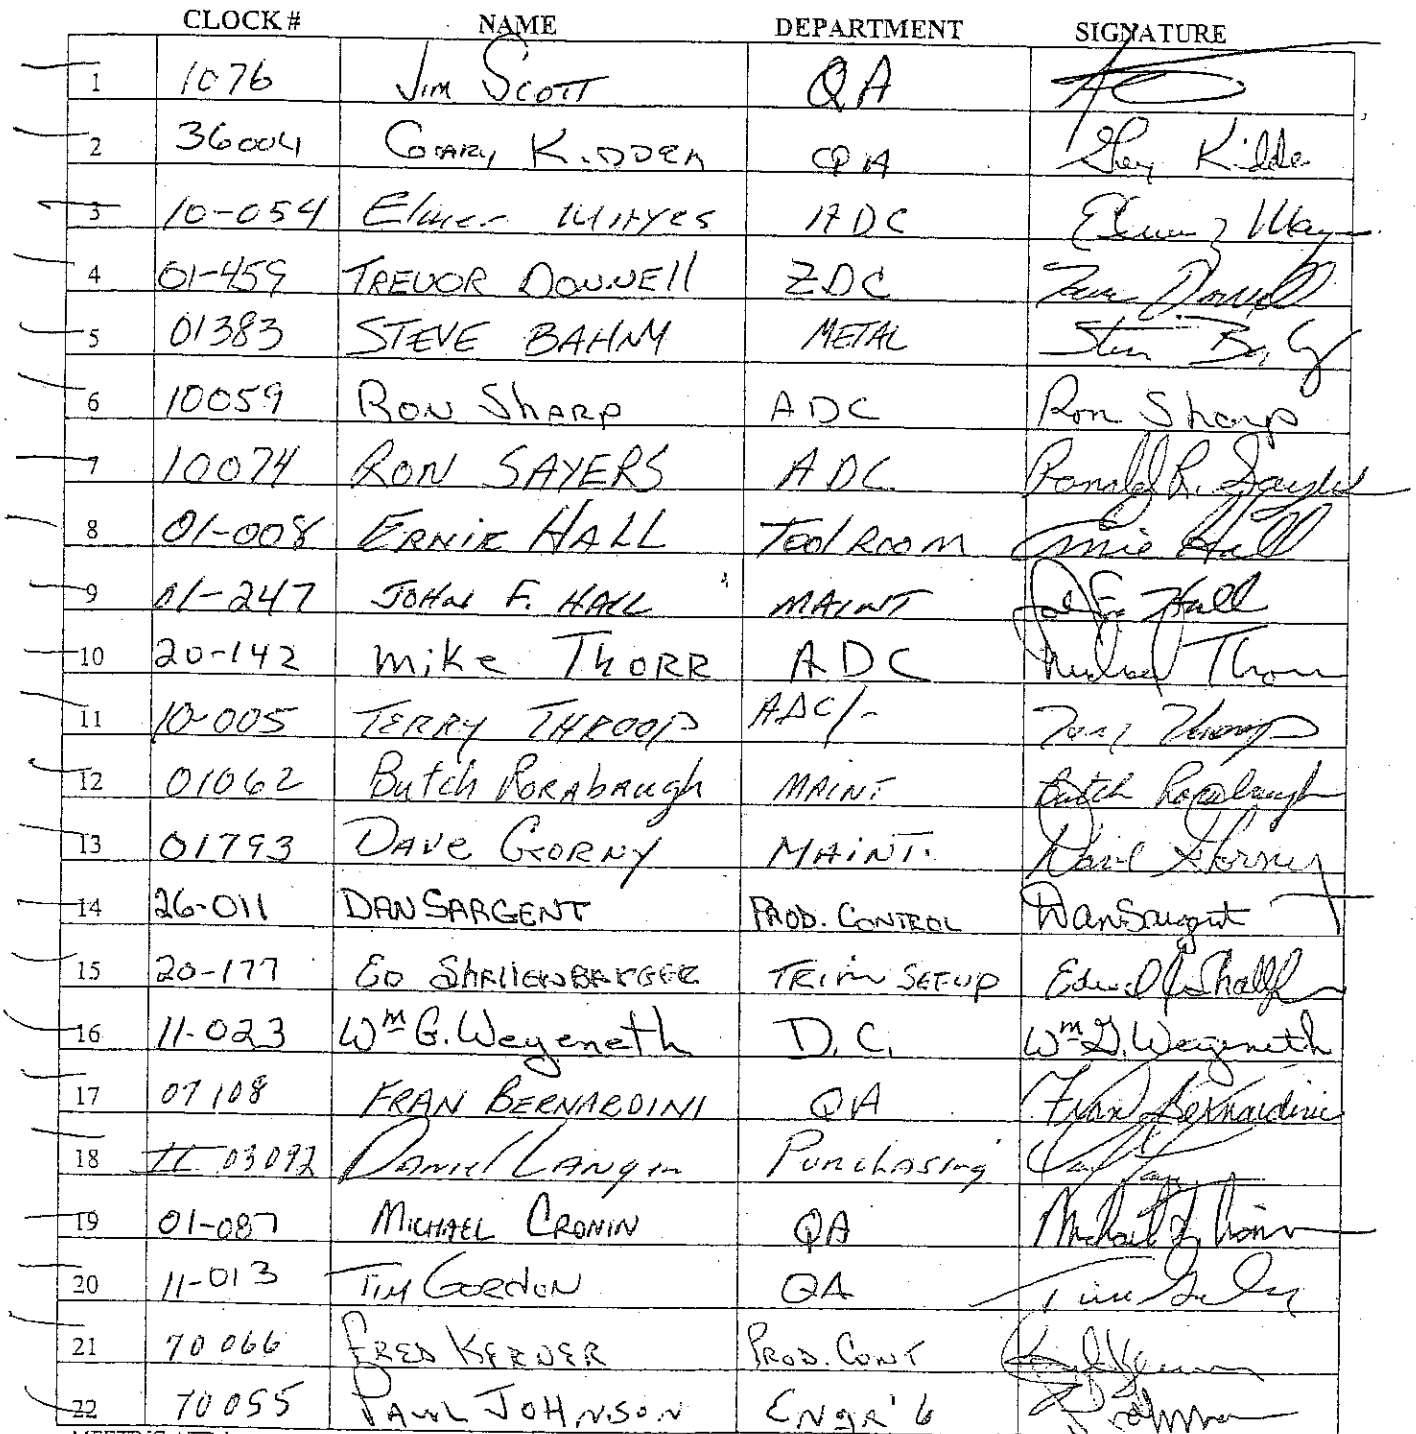 CLOCK # NAME DEPARTMENT SIGNATURE
1 1076 Jim Scott QA
2 36004 Gary Kidder QA Gary Kidder
3 10-054 Elmer Mayes ADC Elmer Mayes
4 01-459 TREVOR DONNEll ZDC Donnell
5 01383 STEVE BAHNY METAL Steve
6 10059 RON SHARP ADC Ron Sharp
7 10074 RON SAYERS ADC Ronald R. Sayers
8 01-008 ERNIE HALL Tool Room Ernie Hall
9 01-247 JOHN F. HALL MAINT Hall
10 20-142 mike ThORR ADC Michael Thorr
11 10-005 TERRY THROOP ADC/- Terry Throop
12 01062 Butch RORAbAugh MAINT Butch Rorabaugh
13 01793 DAVe GORNY MAiNT. Dave Gorny
14 26-011 DAN SARGENT PROD. CONTROL Dan Sargent
15 20-177 ED SHALLENBARGER TRim SET-UP Edward
16 11-023 Wm G. Weyeneth D.C. Wm G. Weyeneth
17 07108 FRAN BERNARDINI QA Fran Bernardini
18 03092 Daniel Langin Purchasing
19 01-087 MICHAEL CRONIN QA Michael Cronin
20 11-013 TIM GORDON QA Tim
21 70066 FRED KERNER PROD. CONT
22 70055 PAUL JOHNSON ENGR'G